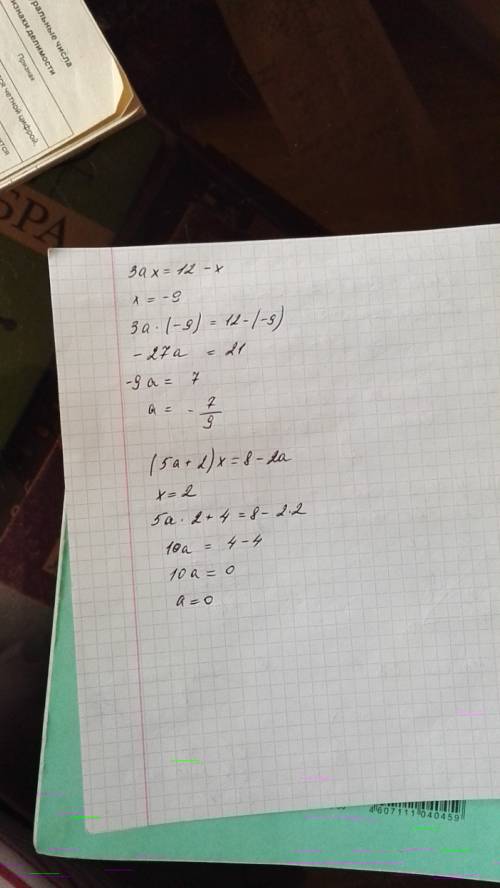 ральные числа
изнаки делимости
Признаки
тся четной цифрой,
БРА
3ax = 12 - x
x = -9
3a · (-9) = 12 - (-9)
- 27a = 21
-9a = 7
a = - 7/9
(5a + 2) x = 8 - 2a
x = 2
5a · 2 + 4 = 8 - 2·2
10a = 4 - 4
10a = 0
a = 0
4 607111 040459